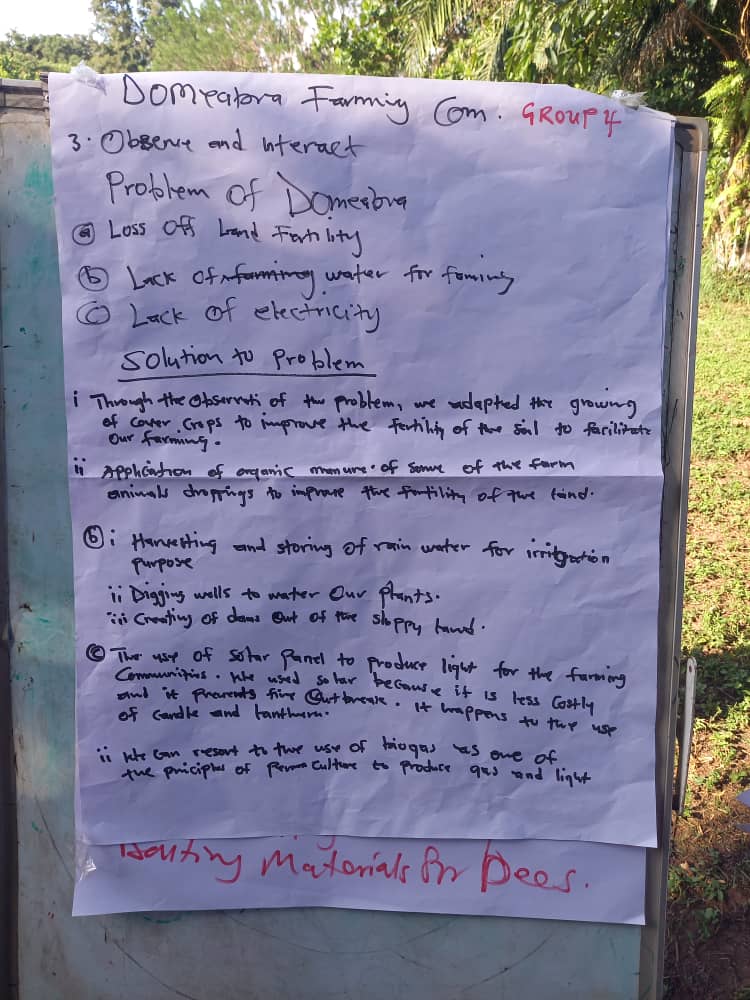 Domeabra Farming Com. GROUP 4
3. Observe and interact
Problem of Domeabra
(a) Loss off Land Fertility
(b) Lack of farming water for farming
(c) Lack of electricity
Solution to Problem
i Through the Observati of the problem, we adapted the growing
of cover crops to improve the fertility of the soil to facilitate
our farming.
ii Application of organic manure of some of the farm
animals droppings to improve the fertility of the land.
(b) i Harvesting and storing of rain water for irritgration
purpose
ii Digging wells to water our plants.
iii Creating of dams out of the sloppy land.
(c) The use of solar panel to produce light for the farming
Communities. We used solar because it is less costly
and it prevents fire outbreak. It happens to the use
of candle and lanthern.
ii We can resort to the use of biogas as one of
the priciples of Permaculture to produce gas and light
Materials for Bees.